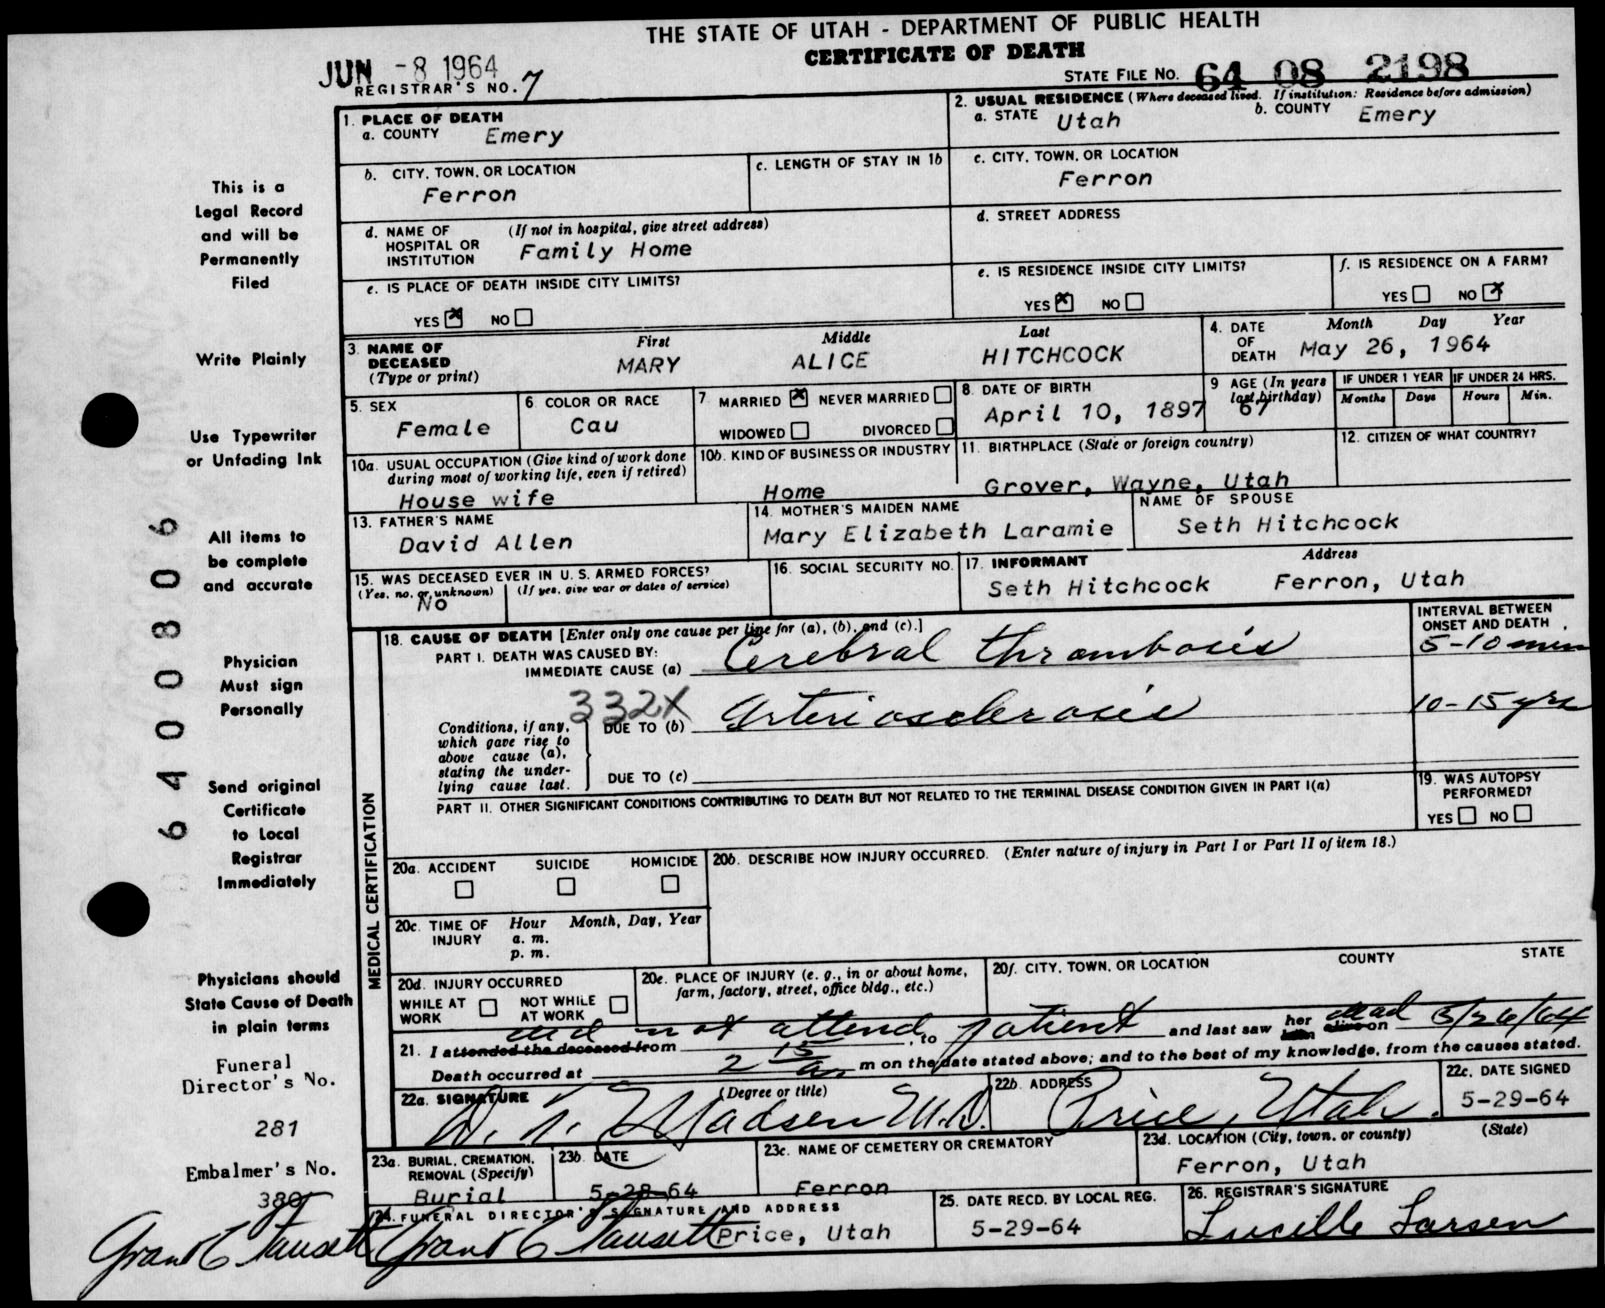 THE STATE OF UTAH - DEPARTMENT OF PUBLIC HEALTH
CERTIFICATE OF DEATH
JUN -8 1964
REGISTRAR'S NO. 7
STATE FILE NO. 64 08 2198
This is a
Legal Record
and will be
Permanently
Filed
Write Plainly
Use Typewriter
or Unfading Ink
All items to
be complete
and accurate
Physician
Must sign
Personally
Send original
Certificate
to Local
Registrar
Immediately
Physicians should
State Cause of Death
in plain terms
Funeral
Director's No.
281
Embalmer's No.
380
Grant C Fausett
64008006
1. PLACE OF DEATH
a. COUNTY Emery
2. USUAL RESIDENCE (Where deceased lived. If institution: Residence before admission)
a. STATE Utah b. COUNTY Emery
b. CITY, TOWN, OR LOCATION
Ferron
c. LENGTH OF STAY IN 1b
c. CITY, TOWN, OR LOCATION
Ferron
d. NAME OF HOSPITAL OR INSTITUTION (If not in hospital, give street address)
Family Home
d. STREET ADDRESS
e. IS PLACE OF DEATH INSIDE CITY LIMITS?
YES X NO
e. IS RESIDENCE INSIDE CITY LIMITS?
YES X NO
f. IS RESIDENCE ON A FARM?
YES NO X
3. NAME OF DECEASED (Type or print)
First Middle Last
MARY ALICE HITCHCOCK
4. DATE OF DEATH Month Day Year
May 26, 1964
5. SEX
Female
6 COLOR OR RACE
Cau
7 MARRIED X NEVER MARRIED
WIDOWED DIVORCED
8 DATE OF BIRTH
April 10, 1897
9 AGE (In years last birthday)
67
IF UNDER 1 YEAR IF UNDER 24 HRS.
Months Days Hours Min.
10a. USUAL OCCUPATION (Give kind of work done during most of working life, even if retired)
House wife
10b. KIND OF BUSINESS OR INDUSTRY
Home
11. BIRTHPLACE (State or foreign country)
Grover, Wayne, Utah
12. CITIZEN OF WHAT COUNTRY?
13. FATHER'S NAME
David Allen
14. MOTHER'S MAIDEN NAME
Mary Elizabeth Laramie
NAME OF SPOUSE
Seth Hitchcock
15. WAS DECEASED EVER IN U. S. ARMED FORCES?
(Yes, no, or unknown) (If yes, give war or dates of service)
No
16. SOCIAL SECURITY NO.
17. INFORMANT Address
Seth Hitchcock Ferron, Utah
MEDICAL CERTIFICATION
18. CAUSE OF DEATH [Enter only one cause per line for (a), (b), and (c).]
INTERVAL BETWEEN ONSET AND DEATH
PART I. DEATH WAS CAUSED BY:
IMMEDIATE CAUSE (a) Cerebral thrombosis 5-10 min
332X
Conditions, if any, which gave rise to above cause (a), stating the underlying cause last.
DUE TO (b) Arteriosclerosis 10-15 yrs
DUE TO (c)
PART II. OTHER SIGNIFICANT CONDITIONS CONTRIBUTING TO DEATH BUT NOT RELATED TO THE TERMINAL DISEASE CONDITION GIVEN IN PART I(a)
19. WAS AUTOPSY PERFORMED?
YES NO
20a. ACCIDENT SUICIDE HOMICIDE
20b. DESCRIBE HOW INJURY OCCURRED. (Enter nature of injury in Part I or Part II of item 18.)
20c. TIME OF INJURY Hour Month, Day, Year
a. m.
p. m.
20d. INJURY OCCURRED
WHILE AT WORK NOT WHILE AT WORK
20e. PLACE OF INJURY (e. g., in or about home, farm, factory, street, office bldg., etc.)
20f. CITY, TOWN, OR LOCATION COUNTY STATE
did not attend patient
21. I attended the deceased from , to and last saw her him dead alive on 5/26/64
Death occurred at 2 15 a m on the date stated above; and to the best of my knowledge, from the causes stated.
22a. SIGNATURE (Degree or title)
D. T. Madsen M.D.
22b. ADDRESS
Price, Utah.
22c. DATE SIGNED
5-29-64
23a. BURIAL, CREMATION, REMOVAL (Specify)
Burial
23b. DATE
5-28-64
23c. NAME OF CEMETERY OR CREMATORY
Ferron
23d. LOCATION (City, town, or county) (State)
Ferron, Utah
24. FUNERAL DIRECTOR'S SIGNATURE AND ADDRESS
Grant C Fausett Price, Utah
25. DATE RECD. BY LOCAL REG.
5-29-64
26. REGISTRAR'S SIGNATURE
Lucille Larsen